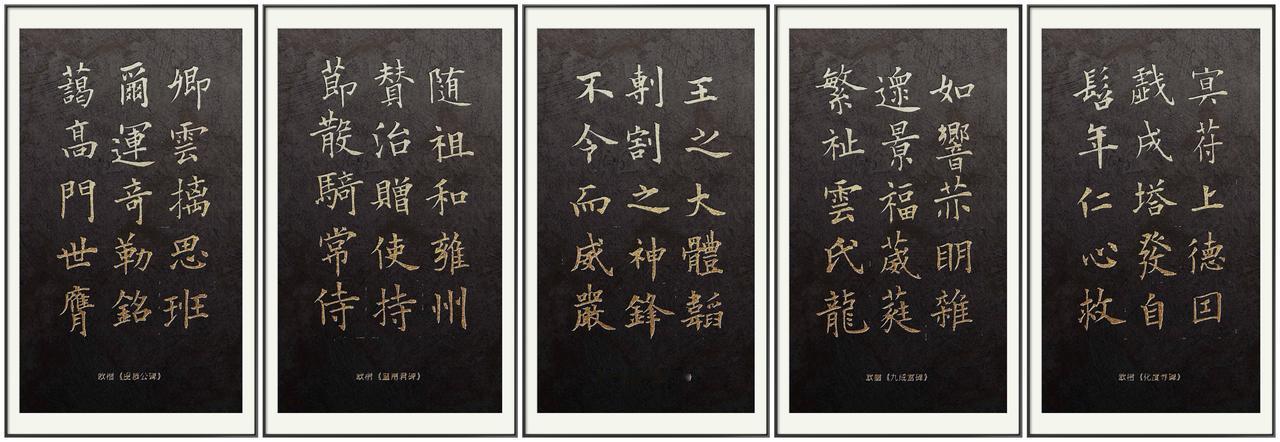 卿雲摛思班
爾運奇勒銘
藹高門世膺
欧楷《虞恭公碑》
随祖和雍州
賛治贈使持
節散騎常侍
欧楷《皇甫君碑》
王之大體韜
剸割之神鋒
不令而威嚴
如響明雜
遝景福葳蕤
繁祉雲氏龍
欧楷《九成宫碑》
冥苻上德因
戲成塔發自
髫年仁心救
欧楷《化度寺碑》